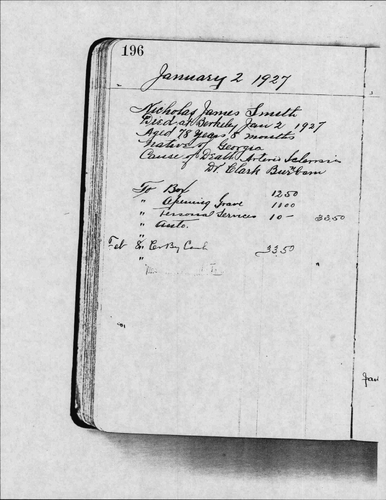 196
January 2 1927
Nicholas James Smith
Died at Berkeley Jan 2 1927
Aged 78 years 8 months
Native of Georgia
Cause of Death Arterio Sclerosis
Dr. Clark Burnham
To Box 12 50
" Opening Grave 11 00
" Personal Services 10 - 33 50
" Auto.
"
Feb 8 Cr By Cash 33.50
"
Jan